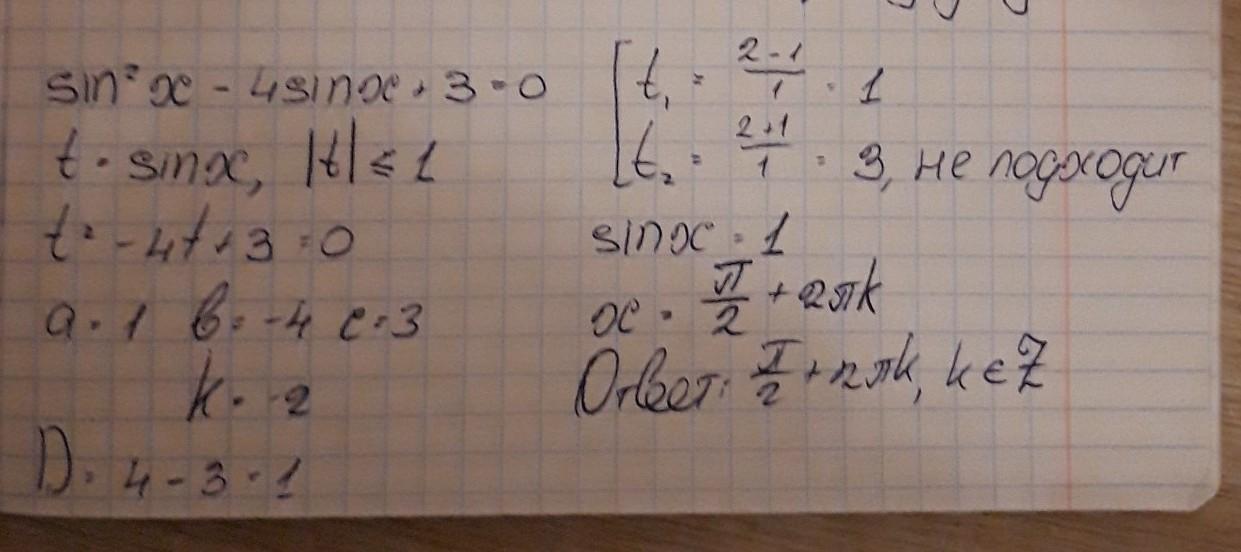 sin²x - 4sinx + 3 = 0
t = sinx, |t| ≤ 1
t² - 4t + 3 = 0
a = 1 b = -4 c = 3
k = -2
D = 4 - 3 = 1
[ t₁ = (2-1)/1 = 1
[ t₂ = (2+1)/1 = 3, не подходит
sinx = 1
x = π/2 + 2πk
Ответ: π/2 + 2πk, k ∈ Z